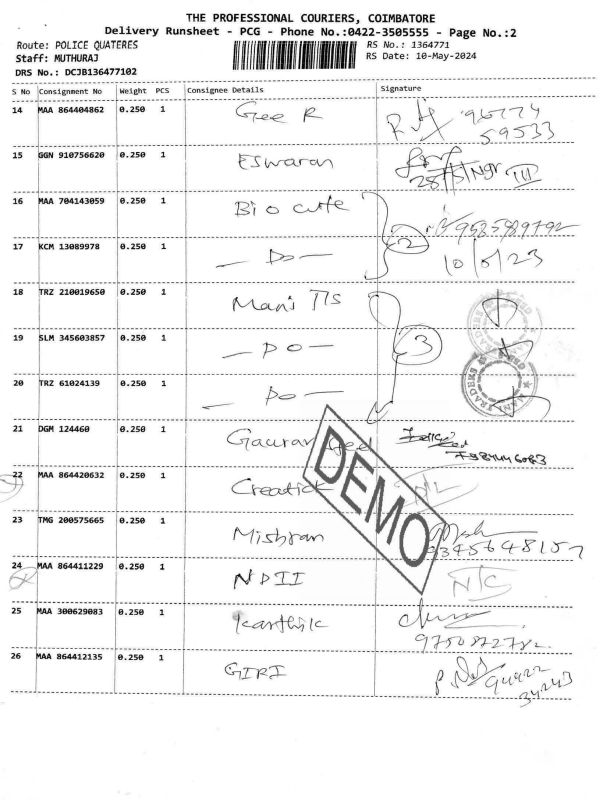 THE PROFESSIONAL COURIERS, COIMBATORE
Delivery Runsheet - PCG - Phone No.:0422-3505555 - Page No.:2
Route: POLICE QUATERES
RS No.: 1364771
Staff: MUTHURAJ
RS Date: 10-May-2024
DRS No.: DCJB136477102
S No Consignment No Weight PCS Consignee Details Signature
14 MAA 864404862 0.250 1 Gee R 96774
59533
15 GGN 910756620 0.250 1 Eswaran
16 MAA 704143059 0.250 1 Bio cute
17 KCM 13089978 0.250 1 — Do — 2 10/5/23
18 TRZ 210019650 0.250 1 Mani Tls
19 SLM 345603857 0.250 1 — DO — 3
20 TRZ 61024139 0.250 1 — DO —
MANI TRADERS
21 DGM 124460 0.250 1 Gauran
22 MAA 864420632 0.250 1 Creatick
DEMO
23 TMG 200575665 0.250 1 Mishran
24 MAA 864411229 0.250 1 NDII
25 MAA 300629083 0.250 1 Karthik
9750872782
26 MAA 864412135 0.250 1 GIRI
94922
34243